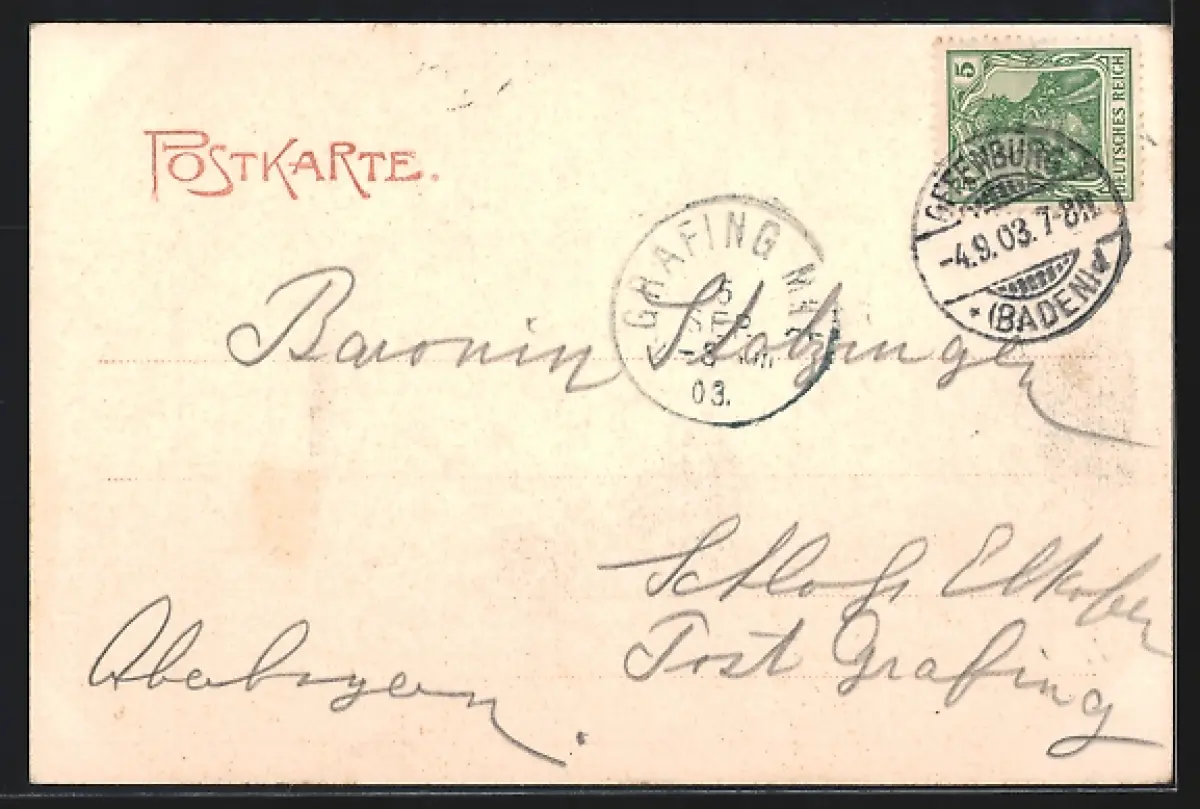 POSTKARTE.
5
DEUTSCHES REICH
OFFENBURG
-4.9.03. 7-8N
* (BADEN) d
GRAFING
5
SEP.
-8 Vm
03.
Baronin Stotzingen
Schloss Elkofen
Post Grafing
Oberbayern.